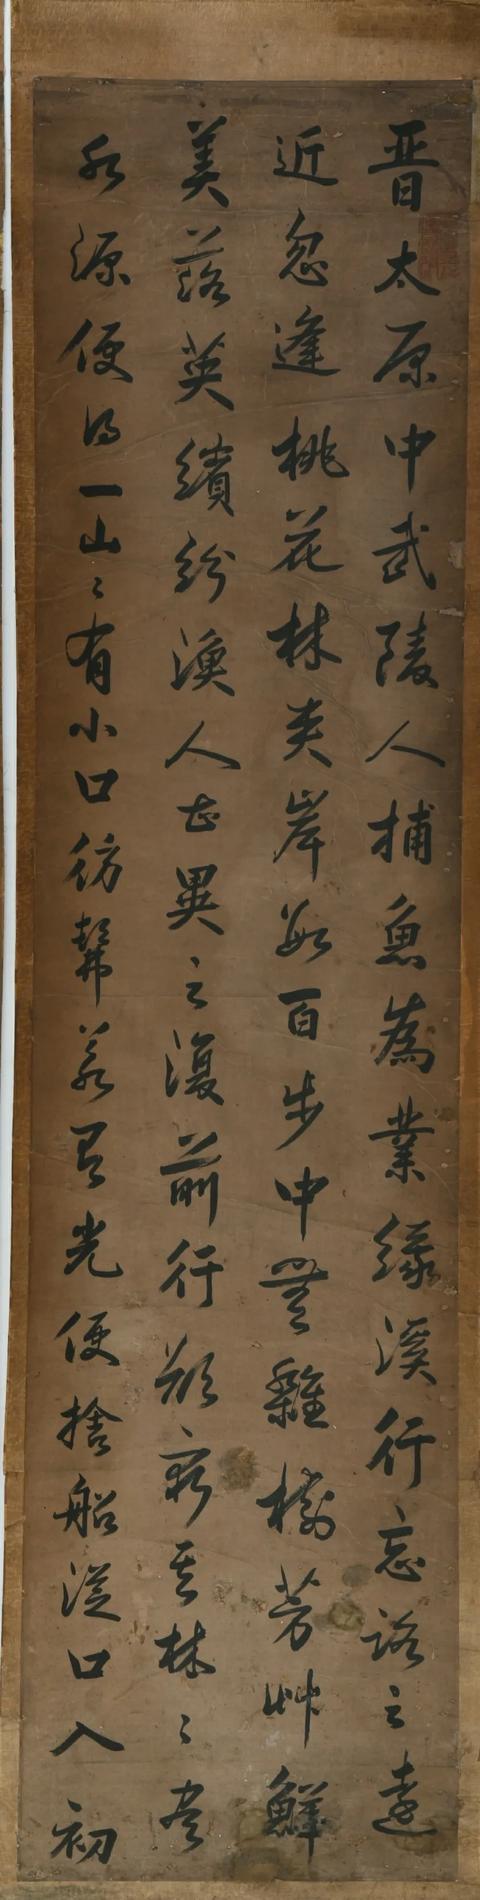 晋太原中武陵人捕魚為業緣溪行忘路之遠
近忽逢桃花林夹岸數百步中無雜樹芳艸鮮
美落英繽紛漁人甚異之復前行欲窮其林〻尽
水源便得一山〻有小口彷髴若有光便捨船從口入初